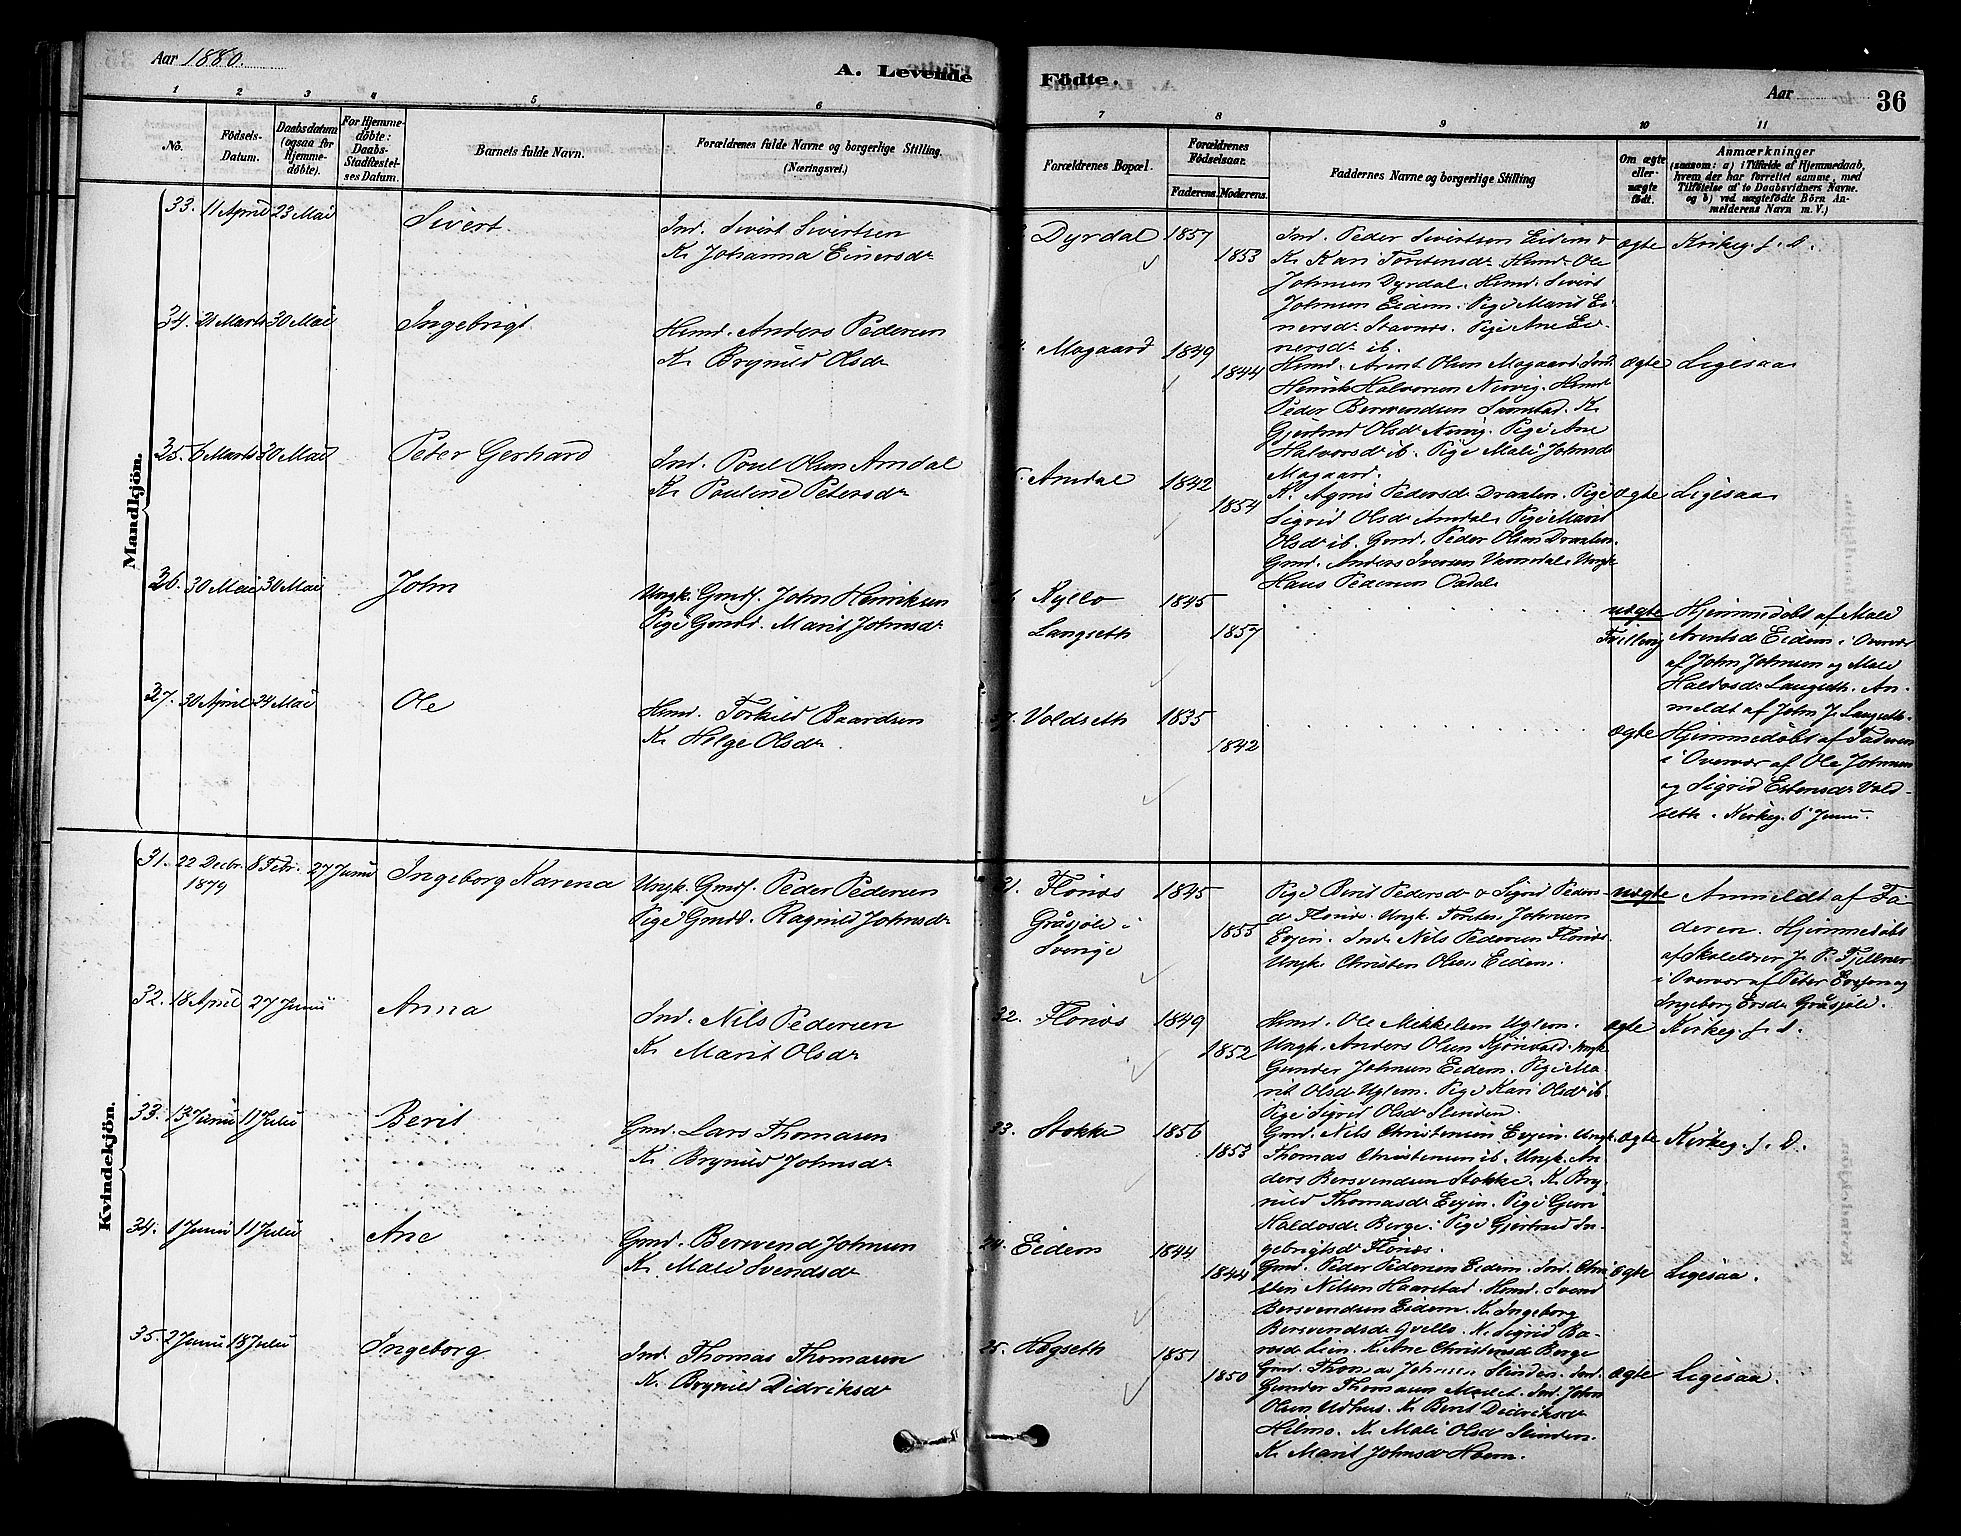 Aar 1880.
A. Levende
Födte.
Aar
36
1 2 3 4 5 6 7 8 9 10 11
No.
Födsels-
Datum.
Daabsdatum
(ogsaa for
Hjemme-
döbte).
For Hjemme-
döbte:
Daabs-
Stadfæstel-
ses Datum.
Barnets fulde Navn.
Forældrenes fulde Navne og borgerlige Stilling.
(Næringsvei.)
Forældrenes Bopæl.
Forældrenes
Födselsaar.
Faderens. Moderens.
Faddernes Navne og borgerlige Stilling
Om ægte
eller
uægte
födt.
Anmærkninger
(saasom: a) i Tilfælde af Hjemmedaab,
hvem der har forrettet samme, med
Tilföielse af to Daabsvidners Navne.
og b) ved uægtefödte Börn An-
melderens Navn m. V.)
Mandkjön.
33. 11 April 23 Mai Sivert. Ind. Sivert Sivertsen
K. Johanna Einersdr
Dyrdal 1857
1853
Ind. Peder Sivertsen Eidem &
K. Kari Torstensdr Hemd. Ole
Johnsen Dyrdal. Hemd. Sivert
Johnsen Eidem. Pige Marit Ei-
nersdr Stavnes. Pige Ane Ei-
nersdr ib.
ægte Kirkeg. f. D.
34. 21 Marts 30 Mai Ingebrigt. Hemd. Anders Pedersen
K. Brynild Olsdr
Mogaard 1849
1844
Hemd. Arent Olsen Mogaard. Ind.
Henrik Halvorsen Nervig. Hemd
Peder Bersvendsen Samstad. K.
Gjertrud Olsdr Nervig. Pige Ane
Halvorsdr ib. Pige Mali Johnsdr
Mogaard.
ægte Ligesaa
35. 6 Marts 30 Mai Peter Gerhard Ind. Poul Olsen Amdal
K. Pauline Petersdr
Amdal 1842
1854
K. Agnis Pedersdr Draalen. Pige
Sigrid Olsdr Amdal. Pige Marit
Olsdr ib. Gmd. Peder Olsen Draalen.
Gmd. Anders Iversen Vamdal. Ungk
Hans Pedersen Opdal
ægte Ligesaa
36. 30 Mai 30 Mai John Ungk. Gmdf. John Henriksen
Pige Gmdd. Marit Johnsdr
Kyllo 1845
Langseth 1857
uægte
Hjemmedøbt af Mali
Arentsdr Eidem i Overvær
af John Johnsen og Mali
Haldosdr Langseth. An-
meldt af John J. Langseth.
37. 30 April 24 Mai Ole Hemd. Torkild Baardsen
K. Helge Olsdr.
37. Voldseth 1835
1842
ægte Hjemmedøbt af Faderen
i Overvær af Ole Johnsen
og Sigrid Estensdr Vold-
seth. Kirkeg. 6 Juni.
Kvindekjön.
31. 22 Decbr. 8 Febr. 27 Juni Ingeborg Karena Ungk. Gmdf. Peder Pedersen
1879
Pige Gmdd. Ragnild Johnsdr
Flonæs 1845
Gråsjöle i 1855
Sverige
Pige Berit Pedersdr & Sigrid Peders-
dr Flonæs. Ungk. Torsten Johnsen
Evjen. Ind. Nils Pedersen Flonæs.
Ungk. Christen Olsen Eidem.
uægte Anmeldt af Fa-
deren. Hjemmedøbt
af Skolelærer J. P. Fjellner
i Overvær af Peter Ersson og
Ingeborg Ersdr Gråsjöle.
32. 18 April 27 Juni Anna Ind. Nils Pedersen
K. Marit Olsdr
32. Flonæs 1849
1852
Hemd. Ole Mikkelsen Uglem.
Ungk. Anders Olsen Kjøsvold. Ungk
Gunder Johnsen Eidem. Pige Ma-
rit Olsdr Uglem. Pige Kari Olsdr ib.
Pige Sigrid Olsdr Slinden.
ægte Kirkeg. f. D.
33. 13 Juni 11 Juli Berit Gmd. Lars Thomasen
K. Brynild Johnsdr
33. Stokke 1856
1853
Gmd. Nils Christensen Evjen. Ungk.
Thomas Christensen ib. Ungk. An-
ders Bersvendsen Stokke. K. Bry-
nild Thomasdr Evjen. Pige Guri
Haldosdr Berge. Pige Gjertrud In-
gebrigtsdr Flonæs.
ægte Kirkeg. f. D.
34. 1 Juni 11 Juli Ane Gmd. Bersvend Johnsen
K. Mali Svendsdr
Eidem 1844
1844
Gmd. Peder Pedersen Eidem. Ind. Chri-
sten Nilsen Haarstad. Hemd. Svend
Bersvendsen Eidem. K. Ingeborg
Bersvendsdr Qvello. K. Sigrid Ba-
rosdr Lien. K. Ane Christensdr Berge
ægte Ligesaa.
35. 2 Juni 18 Juli Ingeborg Ind. Thomas Thomasen
K. Brynild Didriksdr
35. Hogseth 1851
1850
Gmd. Thomas Johnsen Slinden. Ind.
Gunder Thomasen Ind. John
Olsen Udhus. K. Berit Didriksdr
Hilmo. K. Mali Olsdr Slinden.
K. Marit Johnsdr Hoem.
ægte Ligesaa.